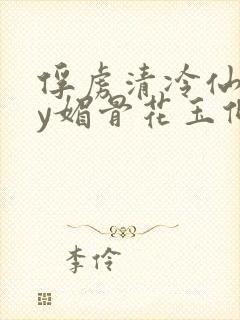 俘虏清冷仙
y媚骨花玉
李伶